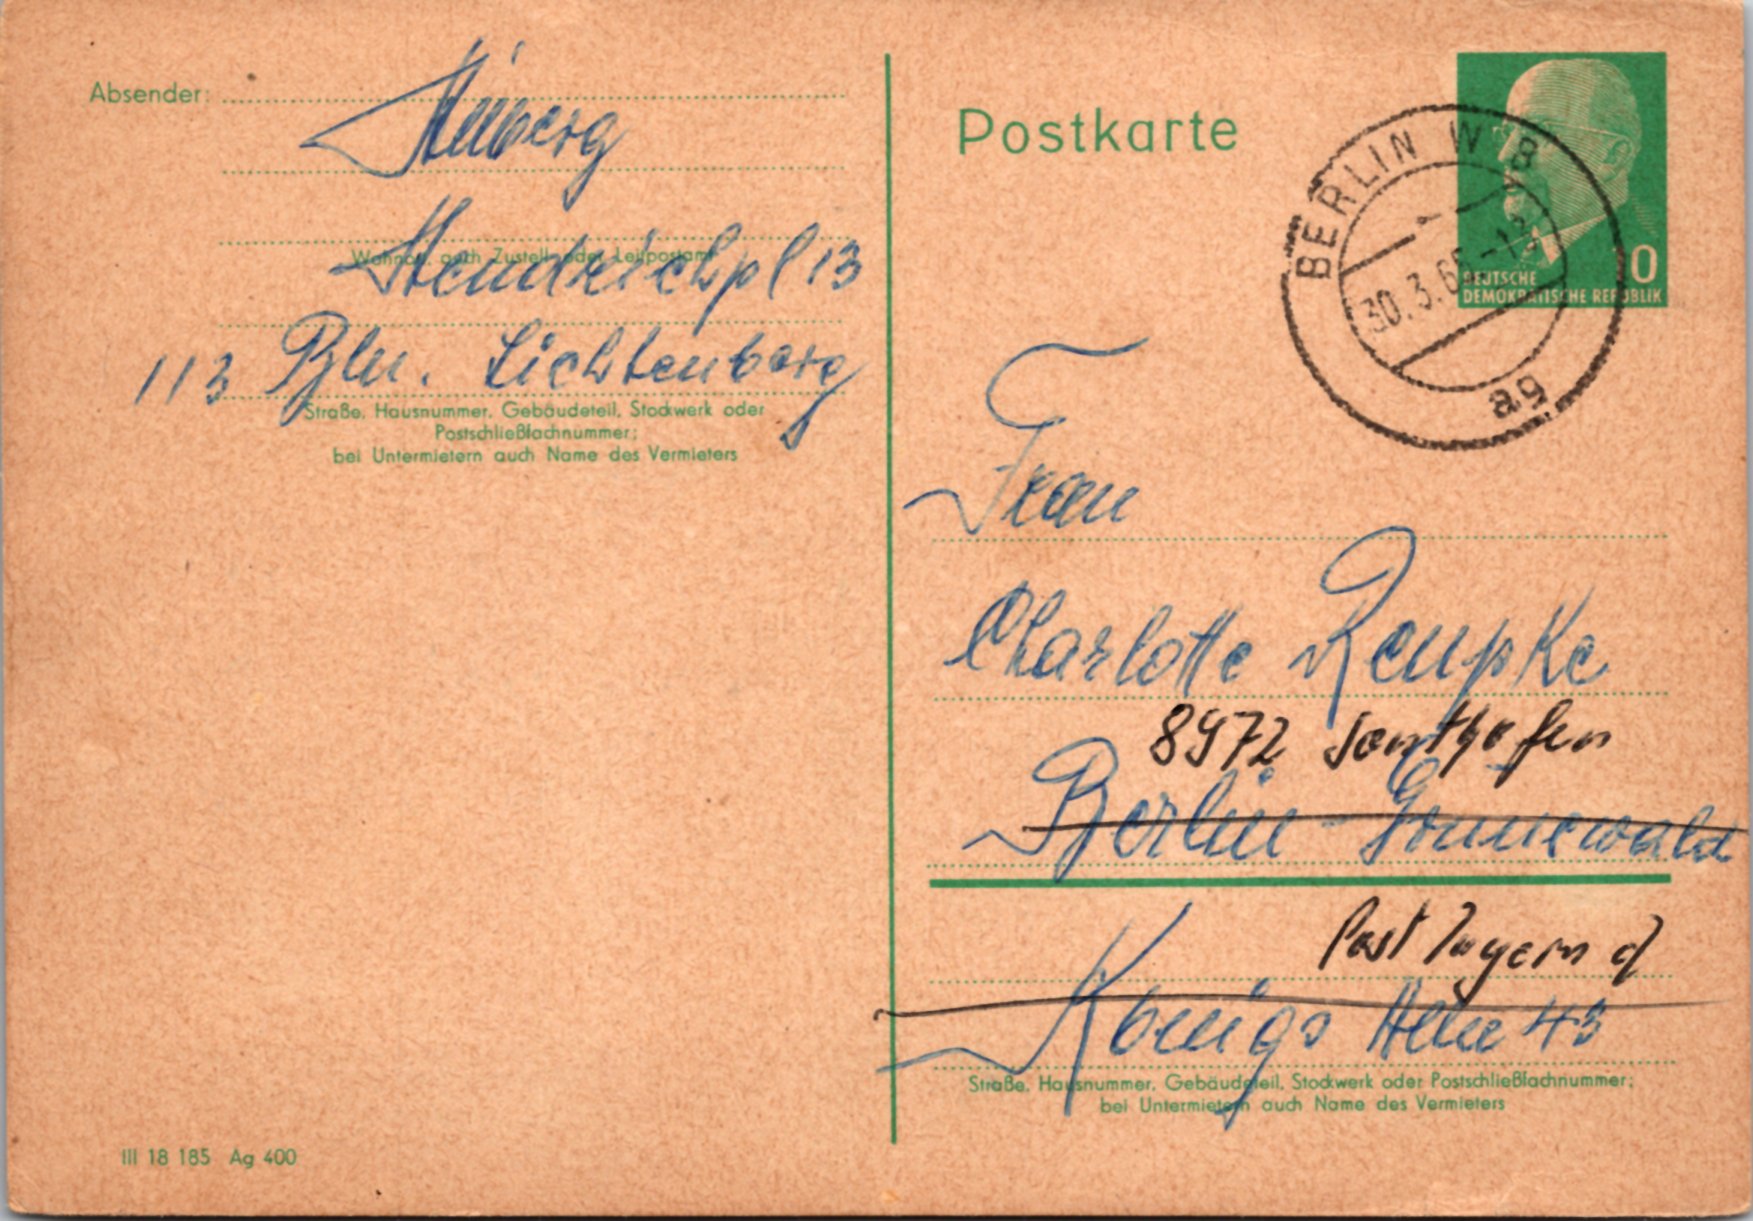 Absender:
Wohnort, auch Zustell- oder Leitpostamt
Hendrichpl 13
113 Bln. Lichtenberg
Straße, Hausnummer, Gebäudeteil, Stockwerk oder
Postschließfachnummer;
bei Untermietern auch Name des Vermieters
III 18 185 Ag 400
Postkarte
BERLIN W 8
30.3.66
ag
0
DEUTSCHE
DEMOKRATISCHE REPUBLIK
Frau
Charlotte Reupke
8972 Sonthofen
Berlin-Grunewald
Post
Königs Allee 43
Straße, Hausnummer, Gebäudeteil, Stockwerk oder Postschließfachnummer;
bei Untermietern auch Name des Vermieters